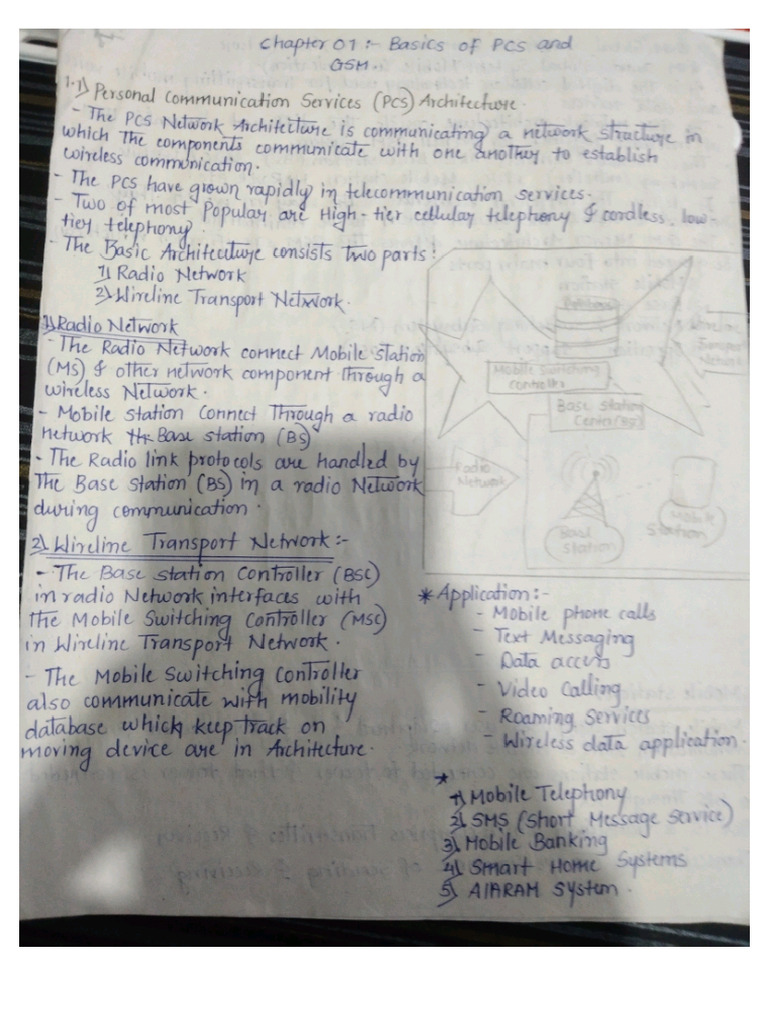 Chapter 01 :- Basics of PCS and
GSM.
1.1) Personal Communication Services (PCS) Architecture.
- The PCS Network Architecture is communicating a network structure in
which the components communicate with one another to establish
wireless communication.
- The PCS have grown rapidly in telecommunication services.
- Two of most Popular are High-tier cellular telephony & cordless, low-
tier telephony.
- The Basic Architecture consists Two parts:
1) Radio Network
2) Wireline Transport Network.
1) Radio Network
- The Radio Network connect Mobile Station
(MS) & other network component through a
wireless Network.
- Mobile station Connect Through a radio
network the Base station (BS)
- The Radio link protocols are handled by
The Base Station (BS) in a radio Network
during communication.
2) Wireline Transport Network:-
- The Base station Controller (BSC)
in radio Network interfaces with
the Mobile Switching Controller (MSC)
in Wireline Transport Network.
- The Mobile Switching Controller
also communicate with mobility
database which keep track on
moving device are in Architecture.
Mobile Switching
Controller
Base Station
Radio
Network
Base
Station
Mobile
Station
* Application:-
- Mobile phone calls
- Text Messaging
- Data access
- Video Calling
- Roaming Services
- Wireless data application.
*
1) Mobile Telephony
2) SMS (Short Message Service)
3) Mobile Banking
4) Smart Home Systems
5) AlARAM System.